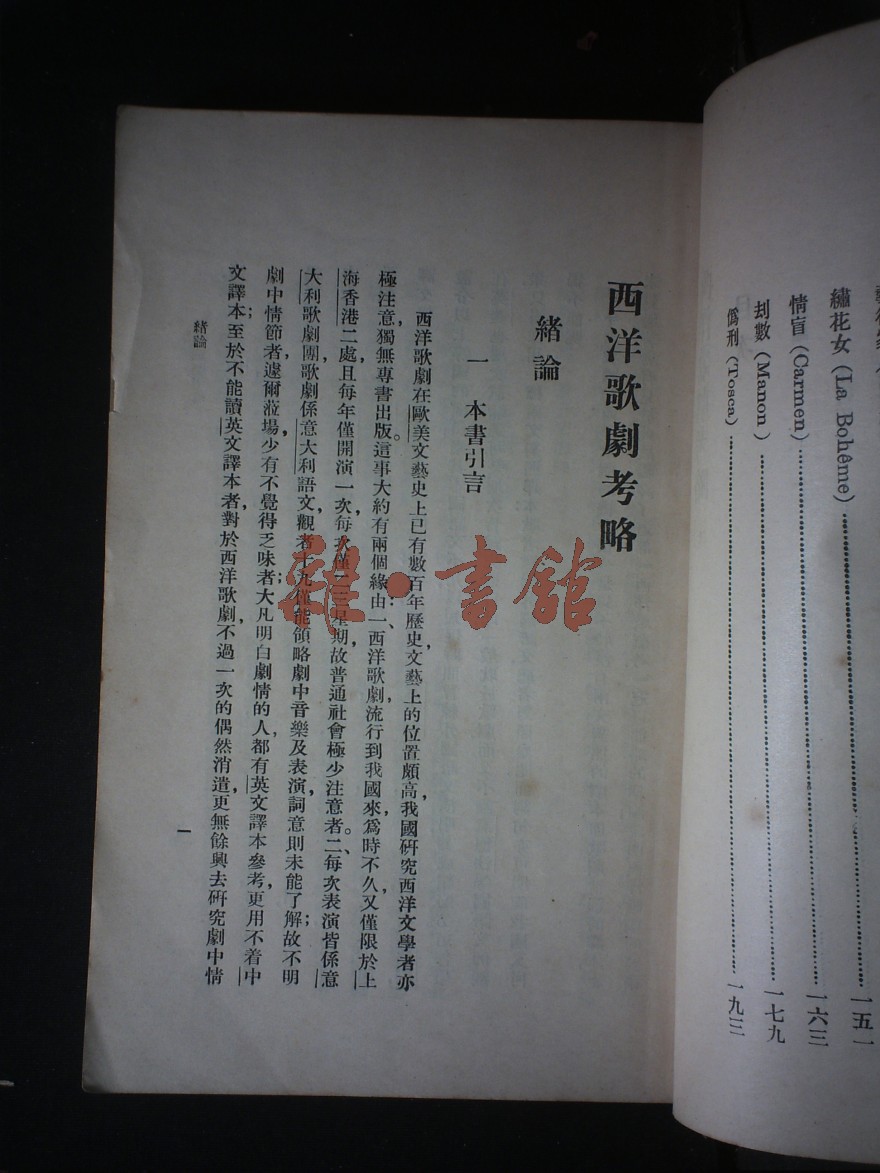 繡花女 (La Bohême)……一五一
情盲 (Carmen)……一六三
刦數 (Manon)……一七九
僞刑 (Tosca)……一九三
西洋歌劇考略
緒論
一 本書引言
西洋歌劇在歐美文藝史上已有數百年歷史，文藝上的位置頗高，我國硏究西洋文學者亦
極注意，獨無專書出版。這事大約有兩個緣由：一、西洋歌劇，流行到我國來，爲時不久，又僅限於上
海香港二處，且每年僅開演一次，每次僅一二星期，故普通社會極少注意者。二、每次表演皆係意
大利歌劇團，歌劇係意大利語文，觀者十九僅能領略劇中音樂及表演，詞意則未能了解；故不明
劇中情節者，遽爾蒞場，少有不覺得乏味者；大凡明白劇情的人，都有英文譯本參考，更用不着中
文譯本；至於不能讀英文譯本者，對於西洋歌劇，不過一次的偶然消遣，更無餘興去硏究劇中情
緒論
一
雜·書館